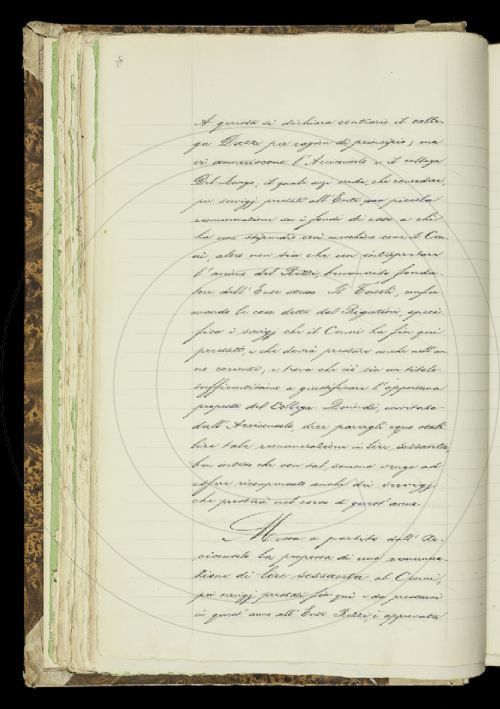 A questa si dichiara contrario il colle-
ga Dazzi per ragion di principio; ma
vi annuiscono l'Arciconsolo e il collega
Del-Lungo; il quale anzi crede, che concedere,
per servigj prestati all'Ente una piccola
remunerazione su i fondi di esso a chi
ha uno stipendio così meschino come il Cen-
ni, altro non sia che un interpretare
l'animo del Rezzi, benemerito fonda-
tore dell'Ente stesso. Il Tortoli, confer-
mando le cose dette dal Rigutini, speci-
fica i servigj che il Cenni ha fin qui
prestato, e che dovrà prestare anche nell'an-
no corrente, e trova che ciò sia un titolo
sufficientissimo a giustificare l'opportuna
proposta del Collega. Quindi, invitato
dall'Arciconsolo, dice parergli equo stabi-
lire tale remunerazione in lire sessanta,
ben inteso che con tal somma venga ad
esser ricompensato anche dei servigj
che presterà nel corso di quest'anno.
Messa a partito dall'Ar-
ciconsolo la proposta di una remunera-
zione di lire sessanta al Cenni,
per servigj prestati fin qui e da prestarsi
in quest'anno all'Ente Rezzi, è approvata